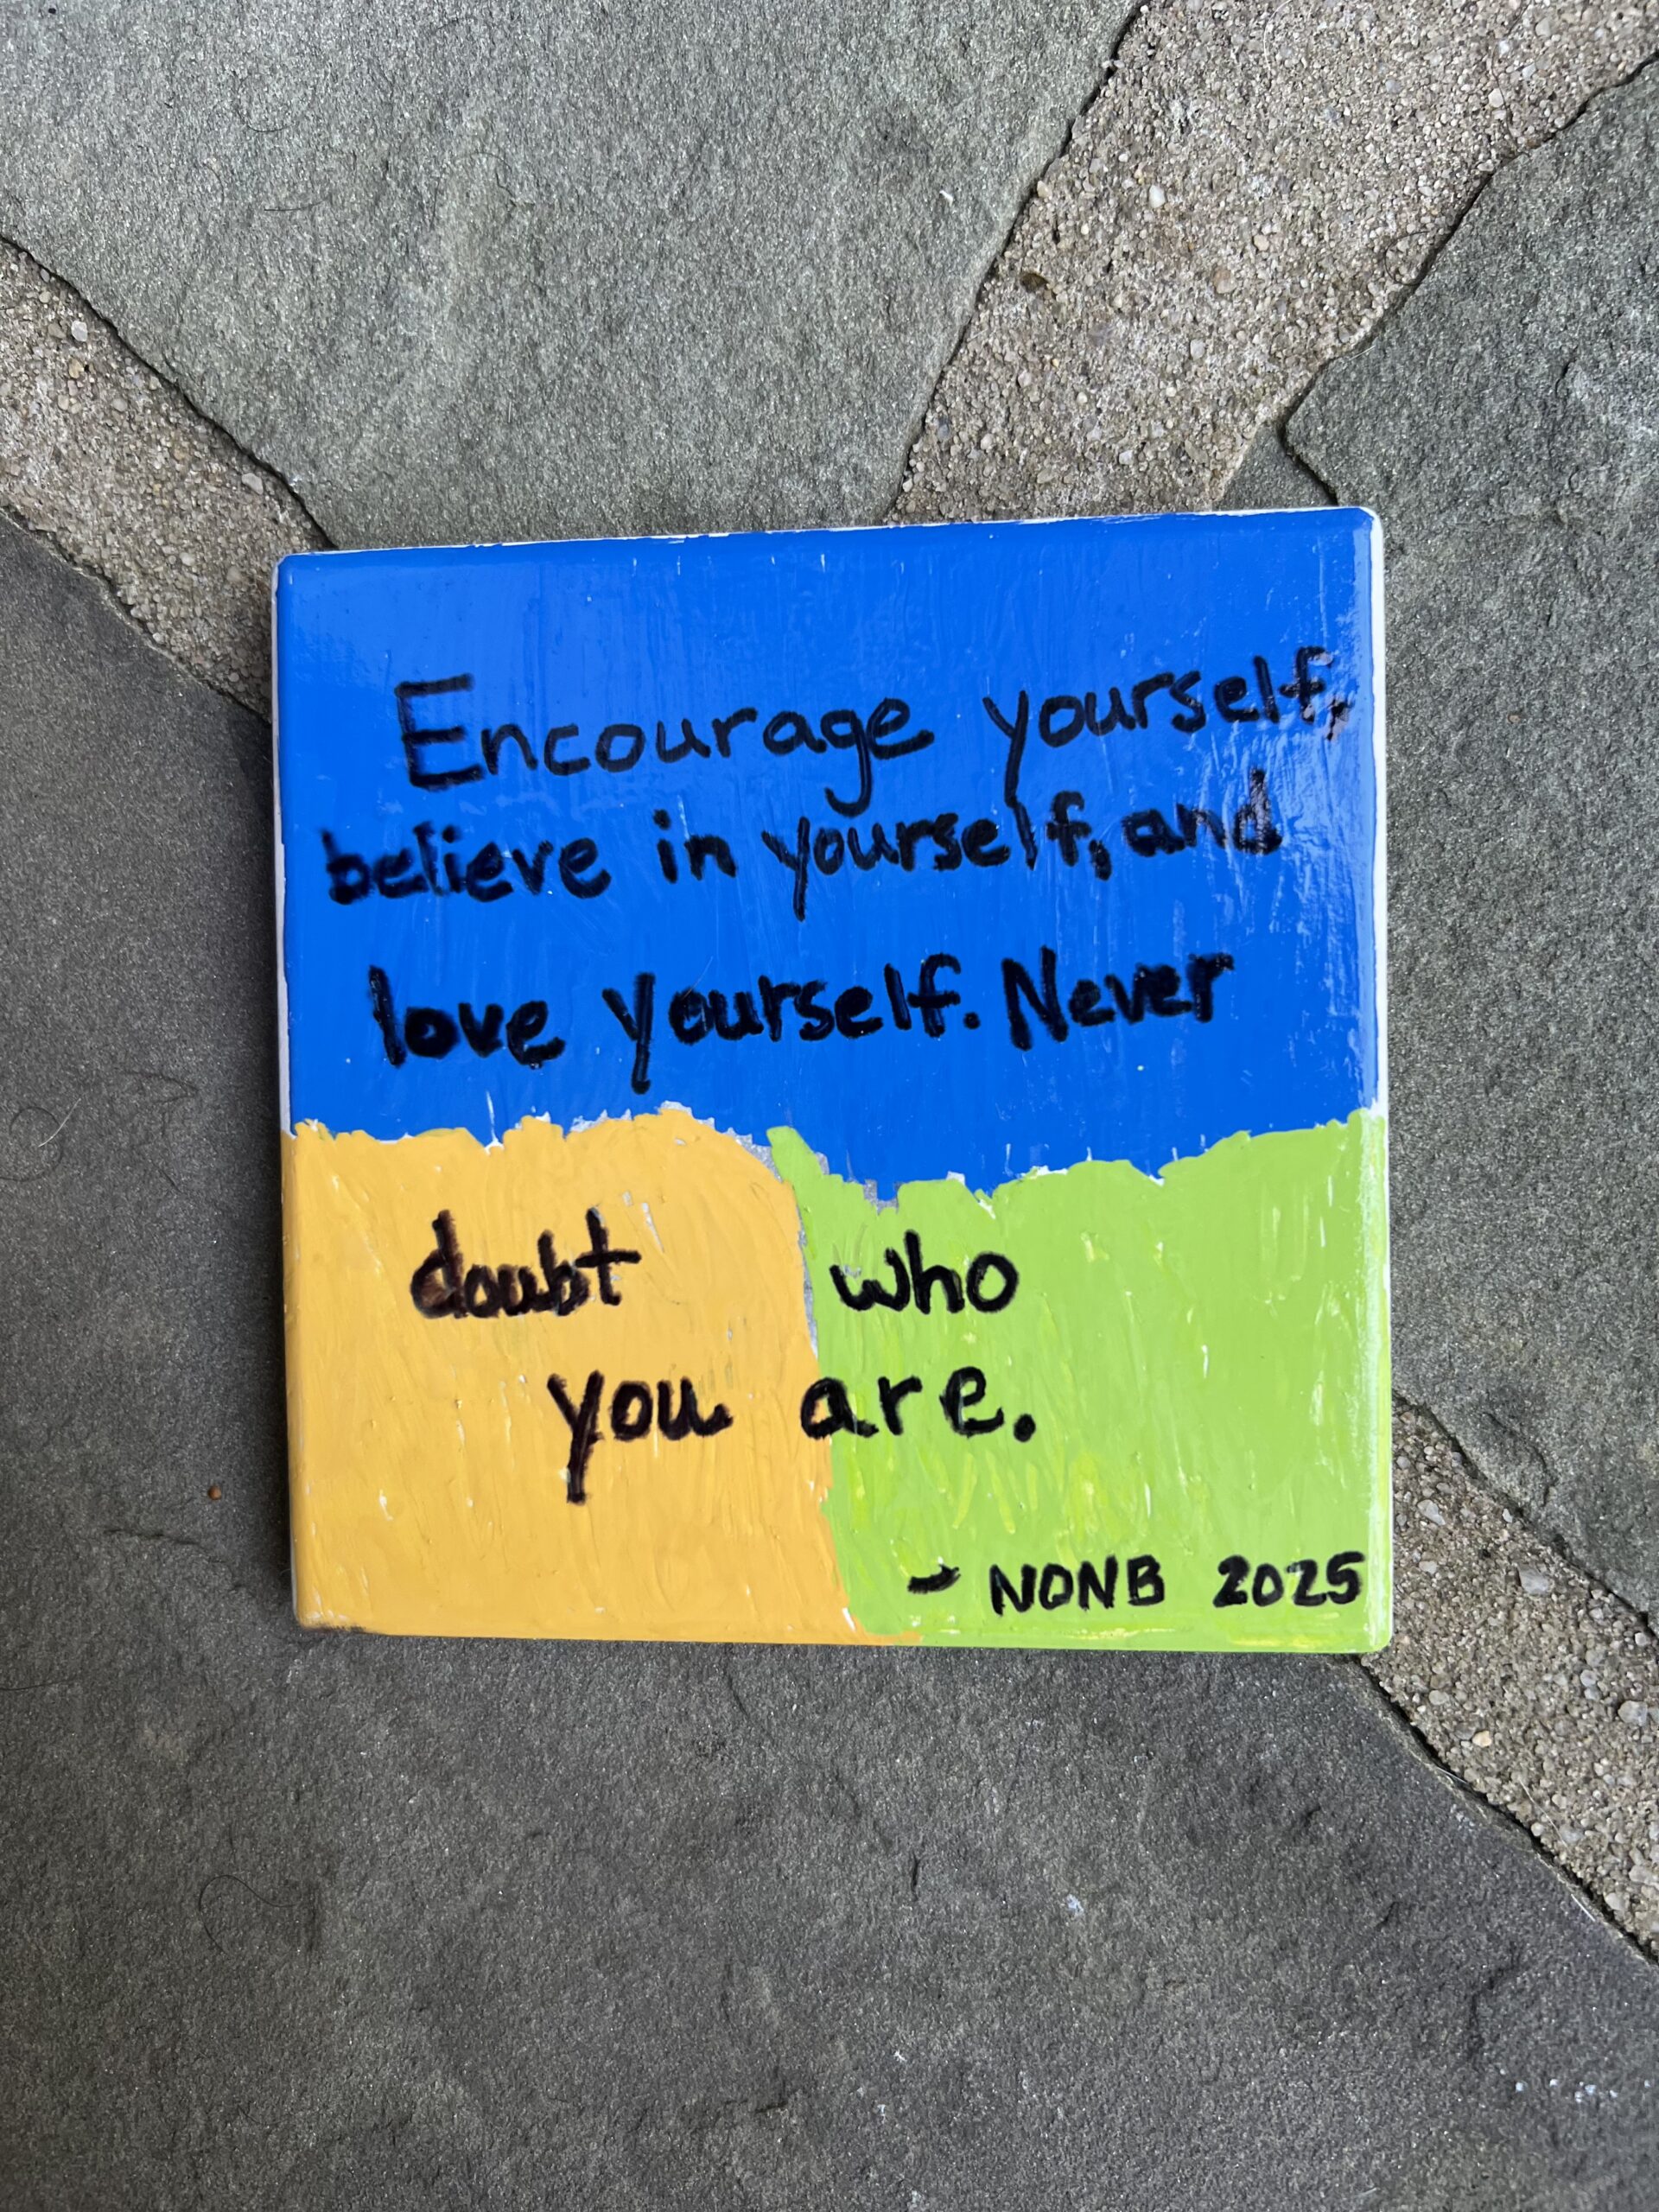 Encourage yourself,
believe in yourself, and
love yourself. Never
doubt who
you are.
- NONB 2025